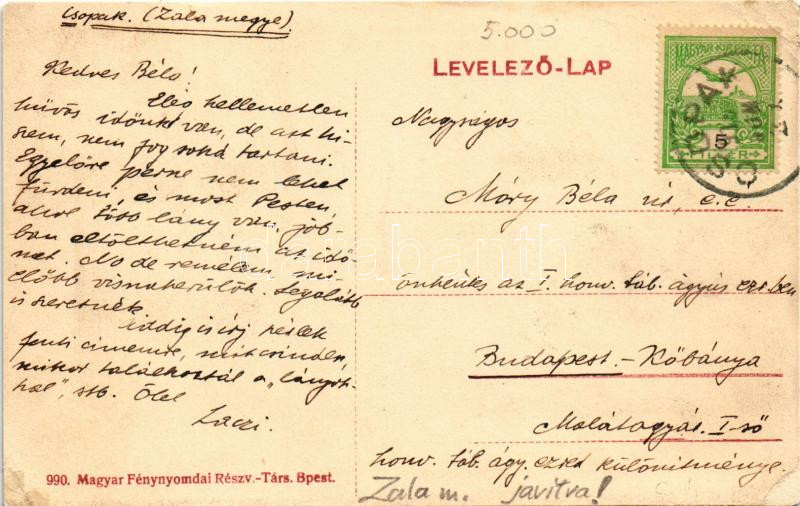 Csopak. (Zala megye)
5.000
LEVELEZŐ-LAP
MAGYAR KIR. POSTA
5
FILLÉR
CSOPAK
Kedves Béla!
Elég kellemetlen
hüvös időnk van, de azt hi-
szem, nem fog soká tartani.
Egyelőre persze nem lehet
fürdeni, és most Pesten,
ahol több lány van, job-
ban eltölthetném az idő-
met. No de remélem, mi-
előbb visszakerülök. Legalább
is szeretnék.
Addig is írj kérlek
fenti címemre, mit csinálsz,
mikor találkoztál a „lányok-
kal", stb. Ölel
Laczi.
Nagyságos
Móry Béla úr, c.c.
önkéntes az I. honv. táb. ágyús ezredben
Budapest.-Kőbánya
Malátagyár. I-ső
honv. táb. ágy. ezred különítménye.
990. Magyar Fénynyomdai Részv.-Társ. Bpest.
Zala m. javítva!
darabanth